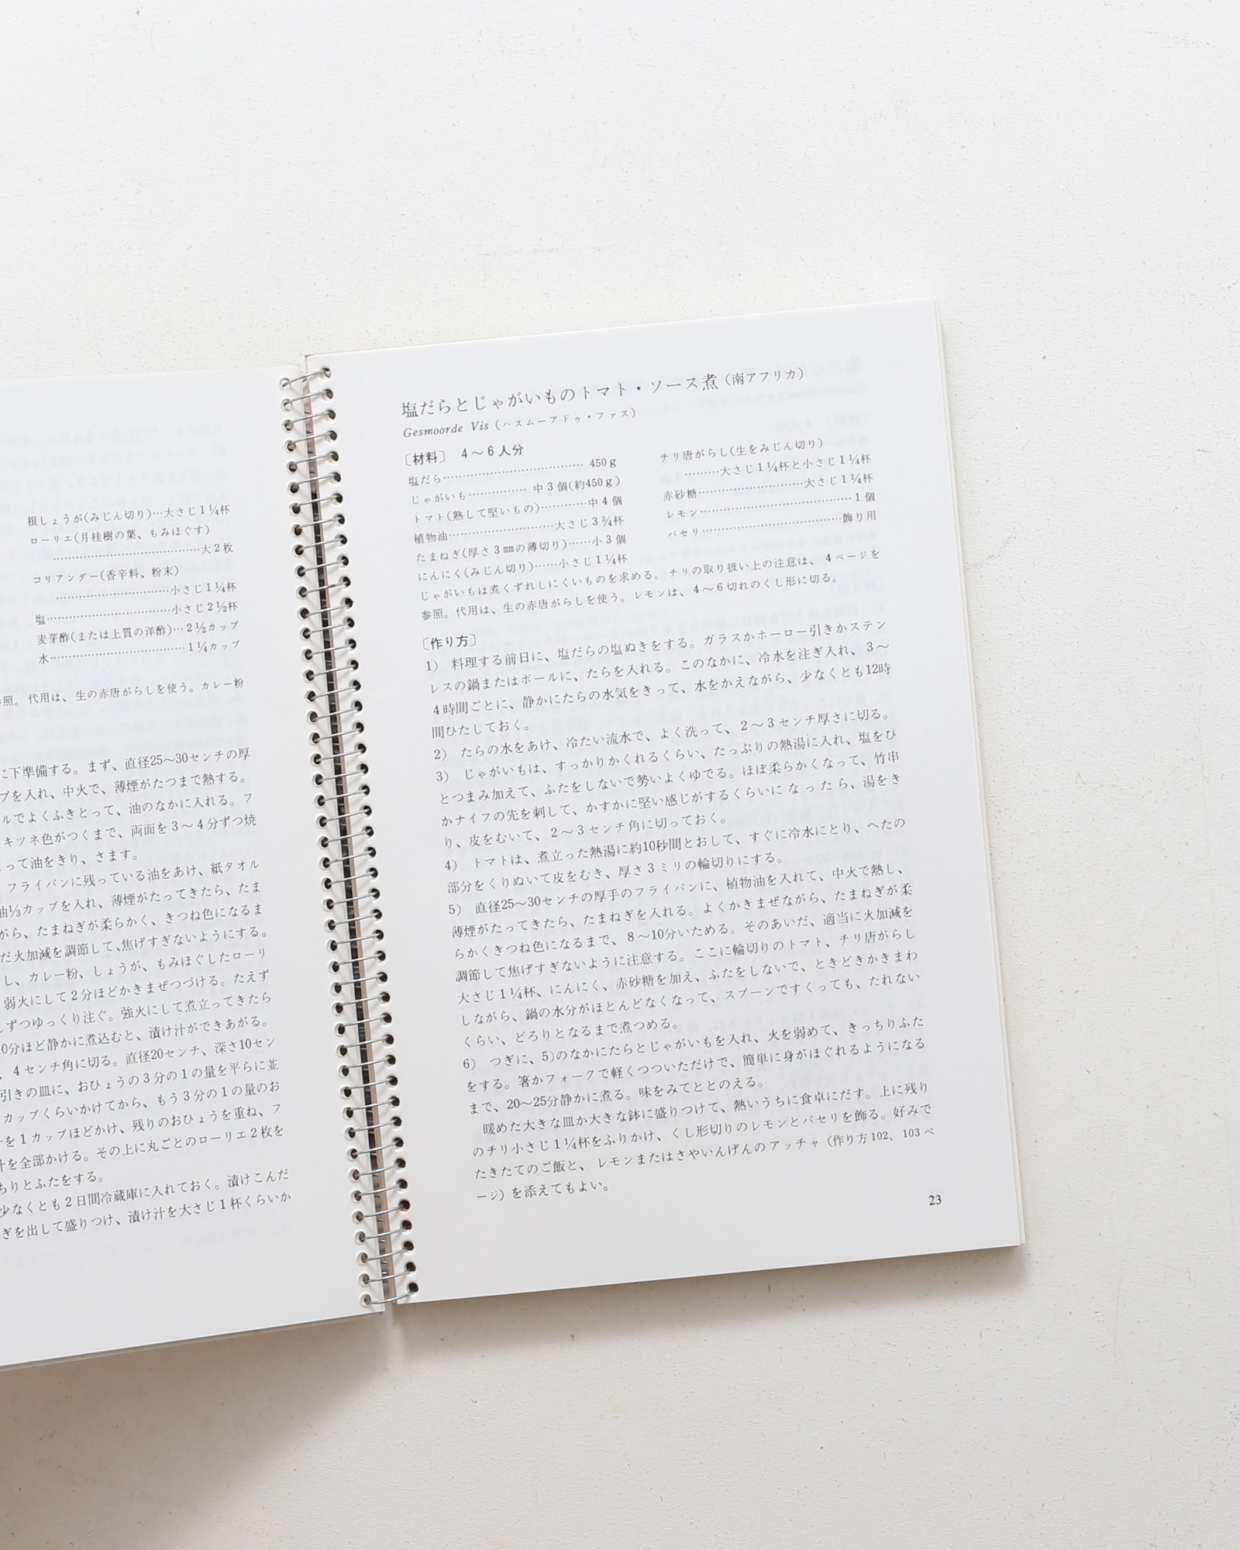 根しょうが(みじん切り)…大さじ1¼杯
ローリエ(月桂樹の葉、もみほぐす)
……………………………大2枚
コリアンダー(香辛料、粉末)
……………………小さじ1¼杯
塩……………………小さじ2½杯
麦芽酢(または上質の洋酢)…2½カップ
水…………………………1¼カップ
照。代用は、生の赤唐がらしを使う。カレー粉
に下準備する。まず、直径25～30センチの厚
プを入れ、中火で、薄煙がたつまで熱する。
ルでよくふきとって、油のなかに入れる。フ
キツネ色がつくまで、両面を3～4分ずつ焼
って油をきり、さます。
フライパンに残っている油をあけ、紙タオル
油⅓カップを入れ、薄煙がたってきたら、たま
がら、たまねぎが柔らかく、きつね色になるま
だ火加減を調節して、焦げすぎないようにする。
し、カレー粉、しょうが、もみほぐしたローリ
弱火にして2分ほどかきまぜつづける。たえず
しずつゆっくり注ぐ。強火にして煮立ってきたら
0分ほど静かに煮込むと、漬け汁ができあがる。
、4センチ角に切る。直径20センチ、深さ10セン
引きの皿に、おひょうの3分の1の量を平らに並
カップくらいかけてから、もう3分の1の量のお
を1カップほどかけ、残りのおひょうを重ね、フ
汁を全部かける。その上に丸ごとのローリエ2枚を
ちりとふたをする。
少なくとも2日間冷蔵庫に入れておく。漬けこんだ
ぎを出して盛りつけ、漬け汁を大さじ1杯くらいか
塩だらとじゃがいものトマト・ソース煮(南アフリカ)
Gesmoorde Vis (ハスムーアドゥ・ファス)
〔材料〕 4～6人分
塩だら…………………………… 450g
じゃがいも…………… 中3個(約450g)
トマト(熟して堅いもの)…………中4個
植物油………………………大さじ3¾杯
たまねぎ(厚さ3㎜の薄切り)……小3個
にんにく(みじん切り)……小さじ1¼杯
チリ唐がらし(生をみじん切り)
………大さじ1¼杯と小さじ1¼杯
赤砂糖……………………大さじ1¼杯
レモン………………………………1個
パセリ……………………………飾り用
じゃがいもは煮くずれしにくいものを求める。チリの取り扱い上の注意は、4ページを
参照。代用は、生の赤唐がらしを使う。レモンは、4～6切れのくし形に切る。
〔作り方〕
1) 料理する前日に、塩だらの塩ぬきをする。ガラスかホーロー引きかステン
レスの鍋またはボールに、たらを入れる。このなかに、冷水を注ぎ入れ、3～
4時間ごとに、静かにたらの水気をきって、水をかえながら、少なくとも12時
間ひたしておく。
2) たらの水をあけ、冷たい流水で、よく洗って、2～3センチ厚さに切る。
3) じゃがいもは、すっかりかくれるくらい、たっぷりの熱湯に入れ、塩をひ
とつまみ加えて、ふたをしないで勢いよくゆでる。ほぼ柔らかくなって、竹串
かナイフの先を刺して、かすかに堅い感じがするくらいになったら、湯をき
り、皮をむいて、2～3センチ角に切っておく。
4) トマトは、煮立った熱湯に約10秒間とおして、すぐに冷水にとり、へたの
部分をくりぬいて皮をむき、厚さ3ミリの輪切りにする。
5) 直径25～30センチの厚手のフライパンに、植物油を入れて、中火で熱し、
薄煙がたってきたら、たまねぎを入れる。よくかきまぜながら、たまねぎが柔
らかくきつね色になるまで、8～10分いためる。そのあいだ、適当に火加減を
調節して焦げすぎないように注意する。ここに輪切りのトマト、チリ唐がらし
大さじ1¼杯、にんにく、赤砂糖を加え、ふたをしないで、ときどきかきまわ
しながら、鍋の水分がほとんどなくなって、スプーンですくっても、たれない
くらい、どろりとなるまで煮つめる。
6) つぎに、5)のなかにたらとじゃがいもを入れ、火を弱めて、きっちりふた
をする。箸かフォークで軽くつついただけで、簡単に身がほぐれるようになる
まで、20～25分静かに煮る。味をみてととのえる。
暖めた大きな皿か大きな鉢に盛りつけて、熱いうちに食卓にだす。上に残り
のチリ小さじ1¼杯をふりかけ、くし形切りのレモンとパセリを飾る。好みで
たきたてのご飯と、レモンまたはさやいんげんのアッチャ(作り方102、103ペ
ージ)を添えてもよい。
23